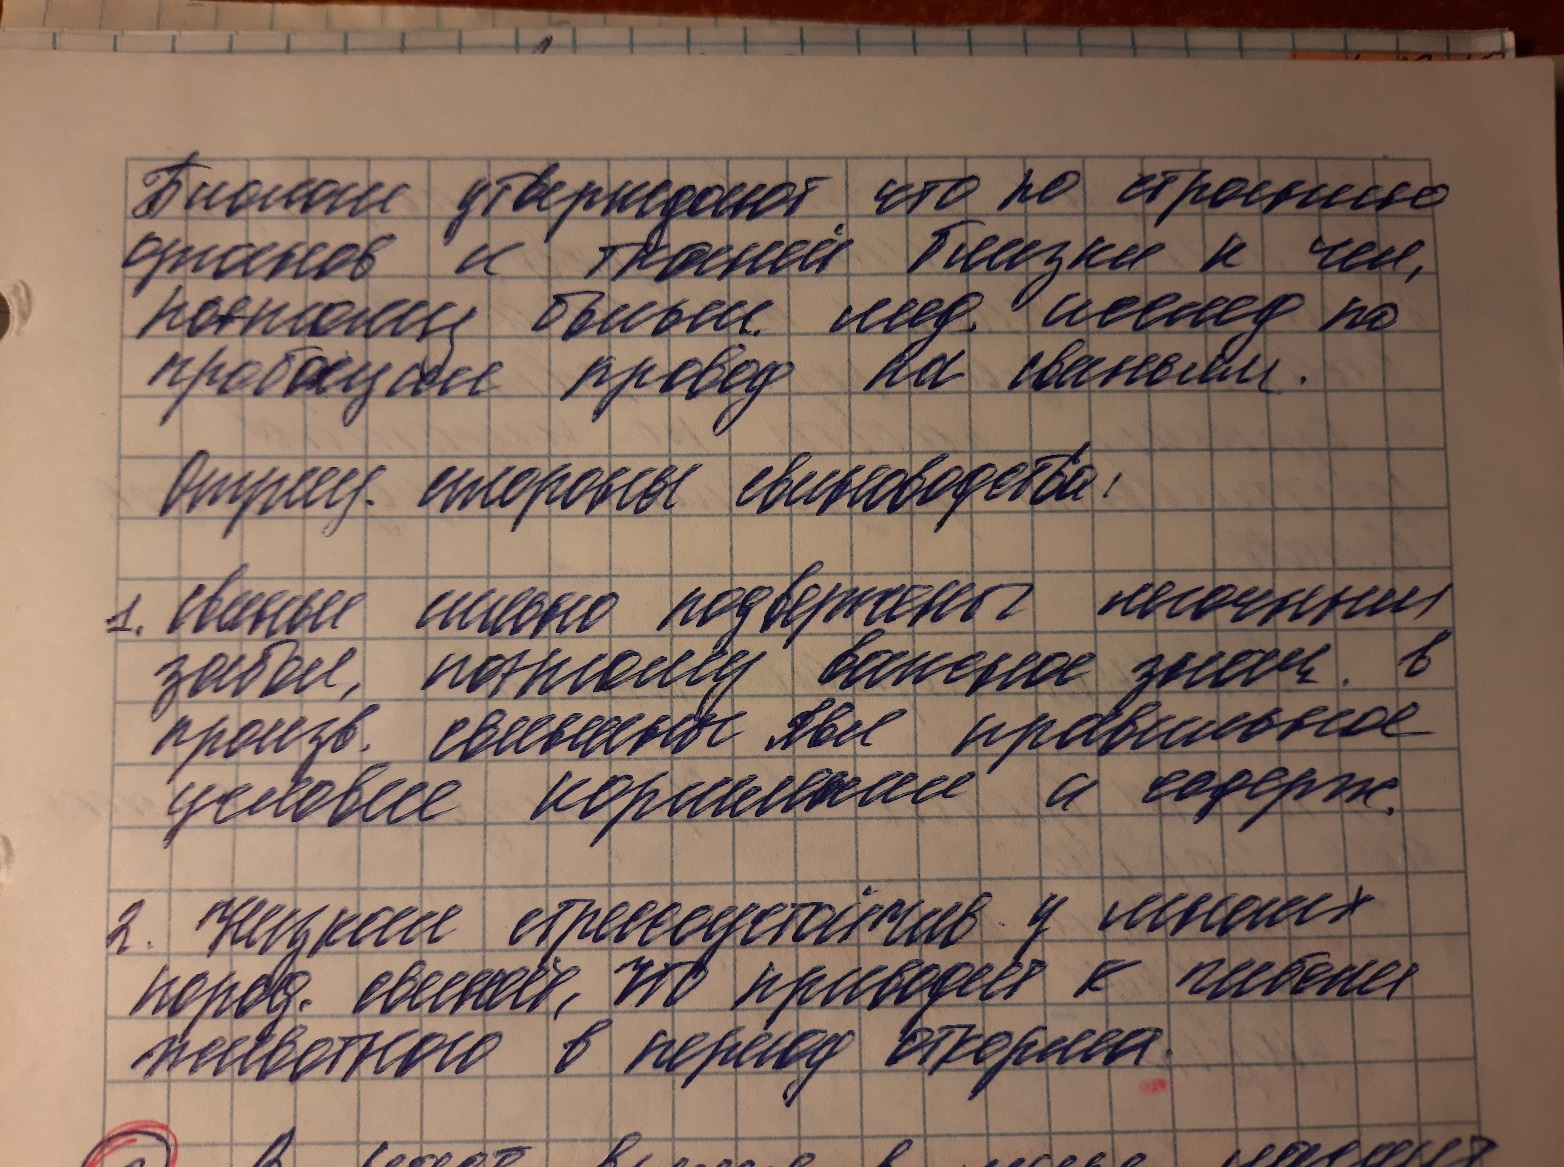 Биологи утверждают что по строению
органов и тканей близки к чел,
поэтому больш. мед. исслед по
провод на свиньях.
Отриц. стороны свиноводства:
1. свиньи сильно подвержены легочным
забол, поэтому важное знач. в
произв. свинины явл правильное
условие кормления и содерж.
2. Низкая стрессоустойчив у многих
пород. свиней, что приводит к гибели
животного в период откорма.